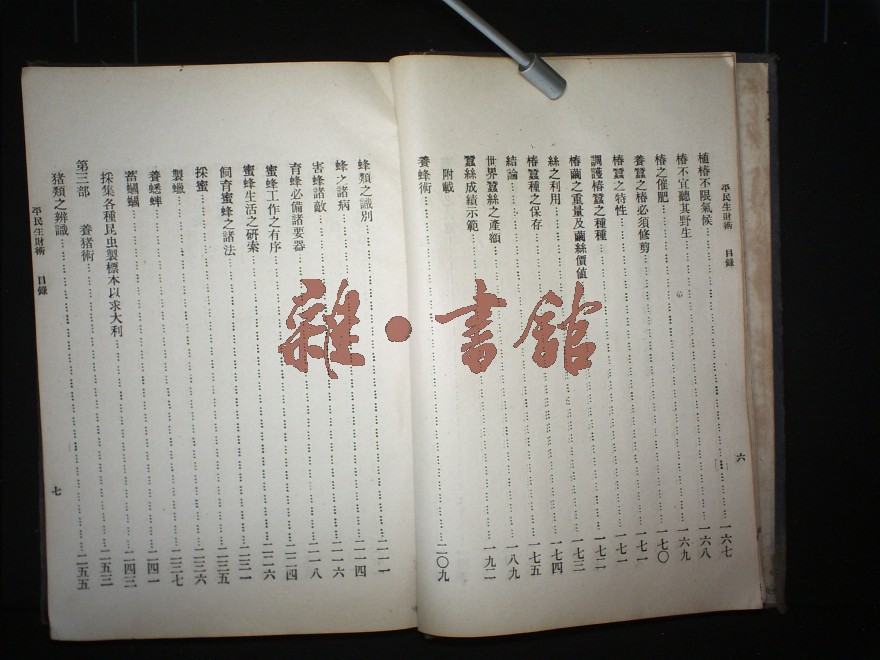 平民生財術　目錄
六
植椿不限氣候……一六七
椿不宜聽其野生……一六八
椿之催肥……一六九
養蠶之椿必須修剪……一七〇
椿蠶之特性……一七一
調護椿蠶之種種……一七一
椿繭之重量及繭絲價値……一七二
絲之利用……一七三
椿蠶種之保存……一七四
結論……一七五
世界蠶絲之產額……一八九
蠶絲成績示範……一九二
附載
養蜂術……二〇九
蜂類之識別……二一一
蜂之諸病……二一四
害蜂諸敵……二一六
育蜂必備諸要器……二一八
蜜蜂工作之有序……二二四
蜜蜂生活之研索……二二六
飼育蜜蜂之諸法……二三一
採蜜……二三五
製蠟……二三六
養蟋蟀……二三七
蓄蟈蟈……二四一
採集各種昆虫製標本以求大利……二四三
第三部　養猪術……二五三
猪類之辨識……二五五
平民生財術　目錄
七
雜·書舘